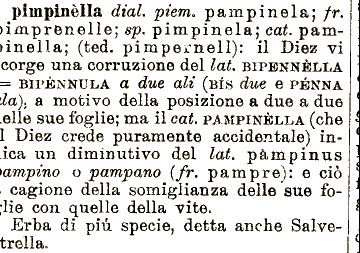 pimpinèlla dial. piem. pampinela; fr.
pimprenelle; sp. pimpinela; cat. pam-
pinella; (ted. pimpernell): il Diez vi
scorge una corruzione del lat. BIPENNÈLLA
= BIPÈNNULA a due ali (BÍS due e PÉNNA
ala), a motivo della posizione a due a due
delle sue foglie; ma il cat. PAMPINÈLLA (che
il Diez crede puramente accidentale) in-
dica un diminutivo del lat. pàmpinus
pampino o pampano (fr. pampre): e ciò
a cagione della somiglianza delle sue fo-
glie con quelle della vite.
Erba di piú specie, detta anche Salve-
trella.